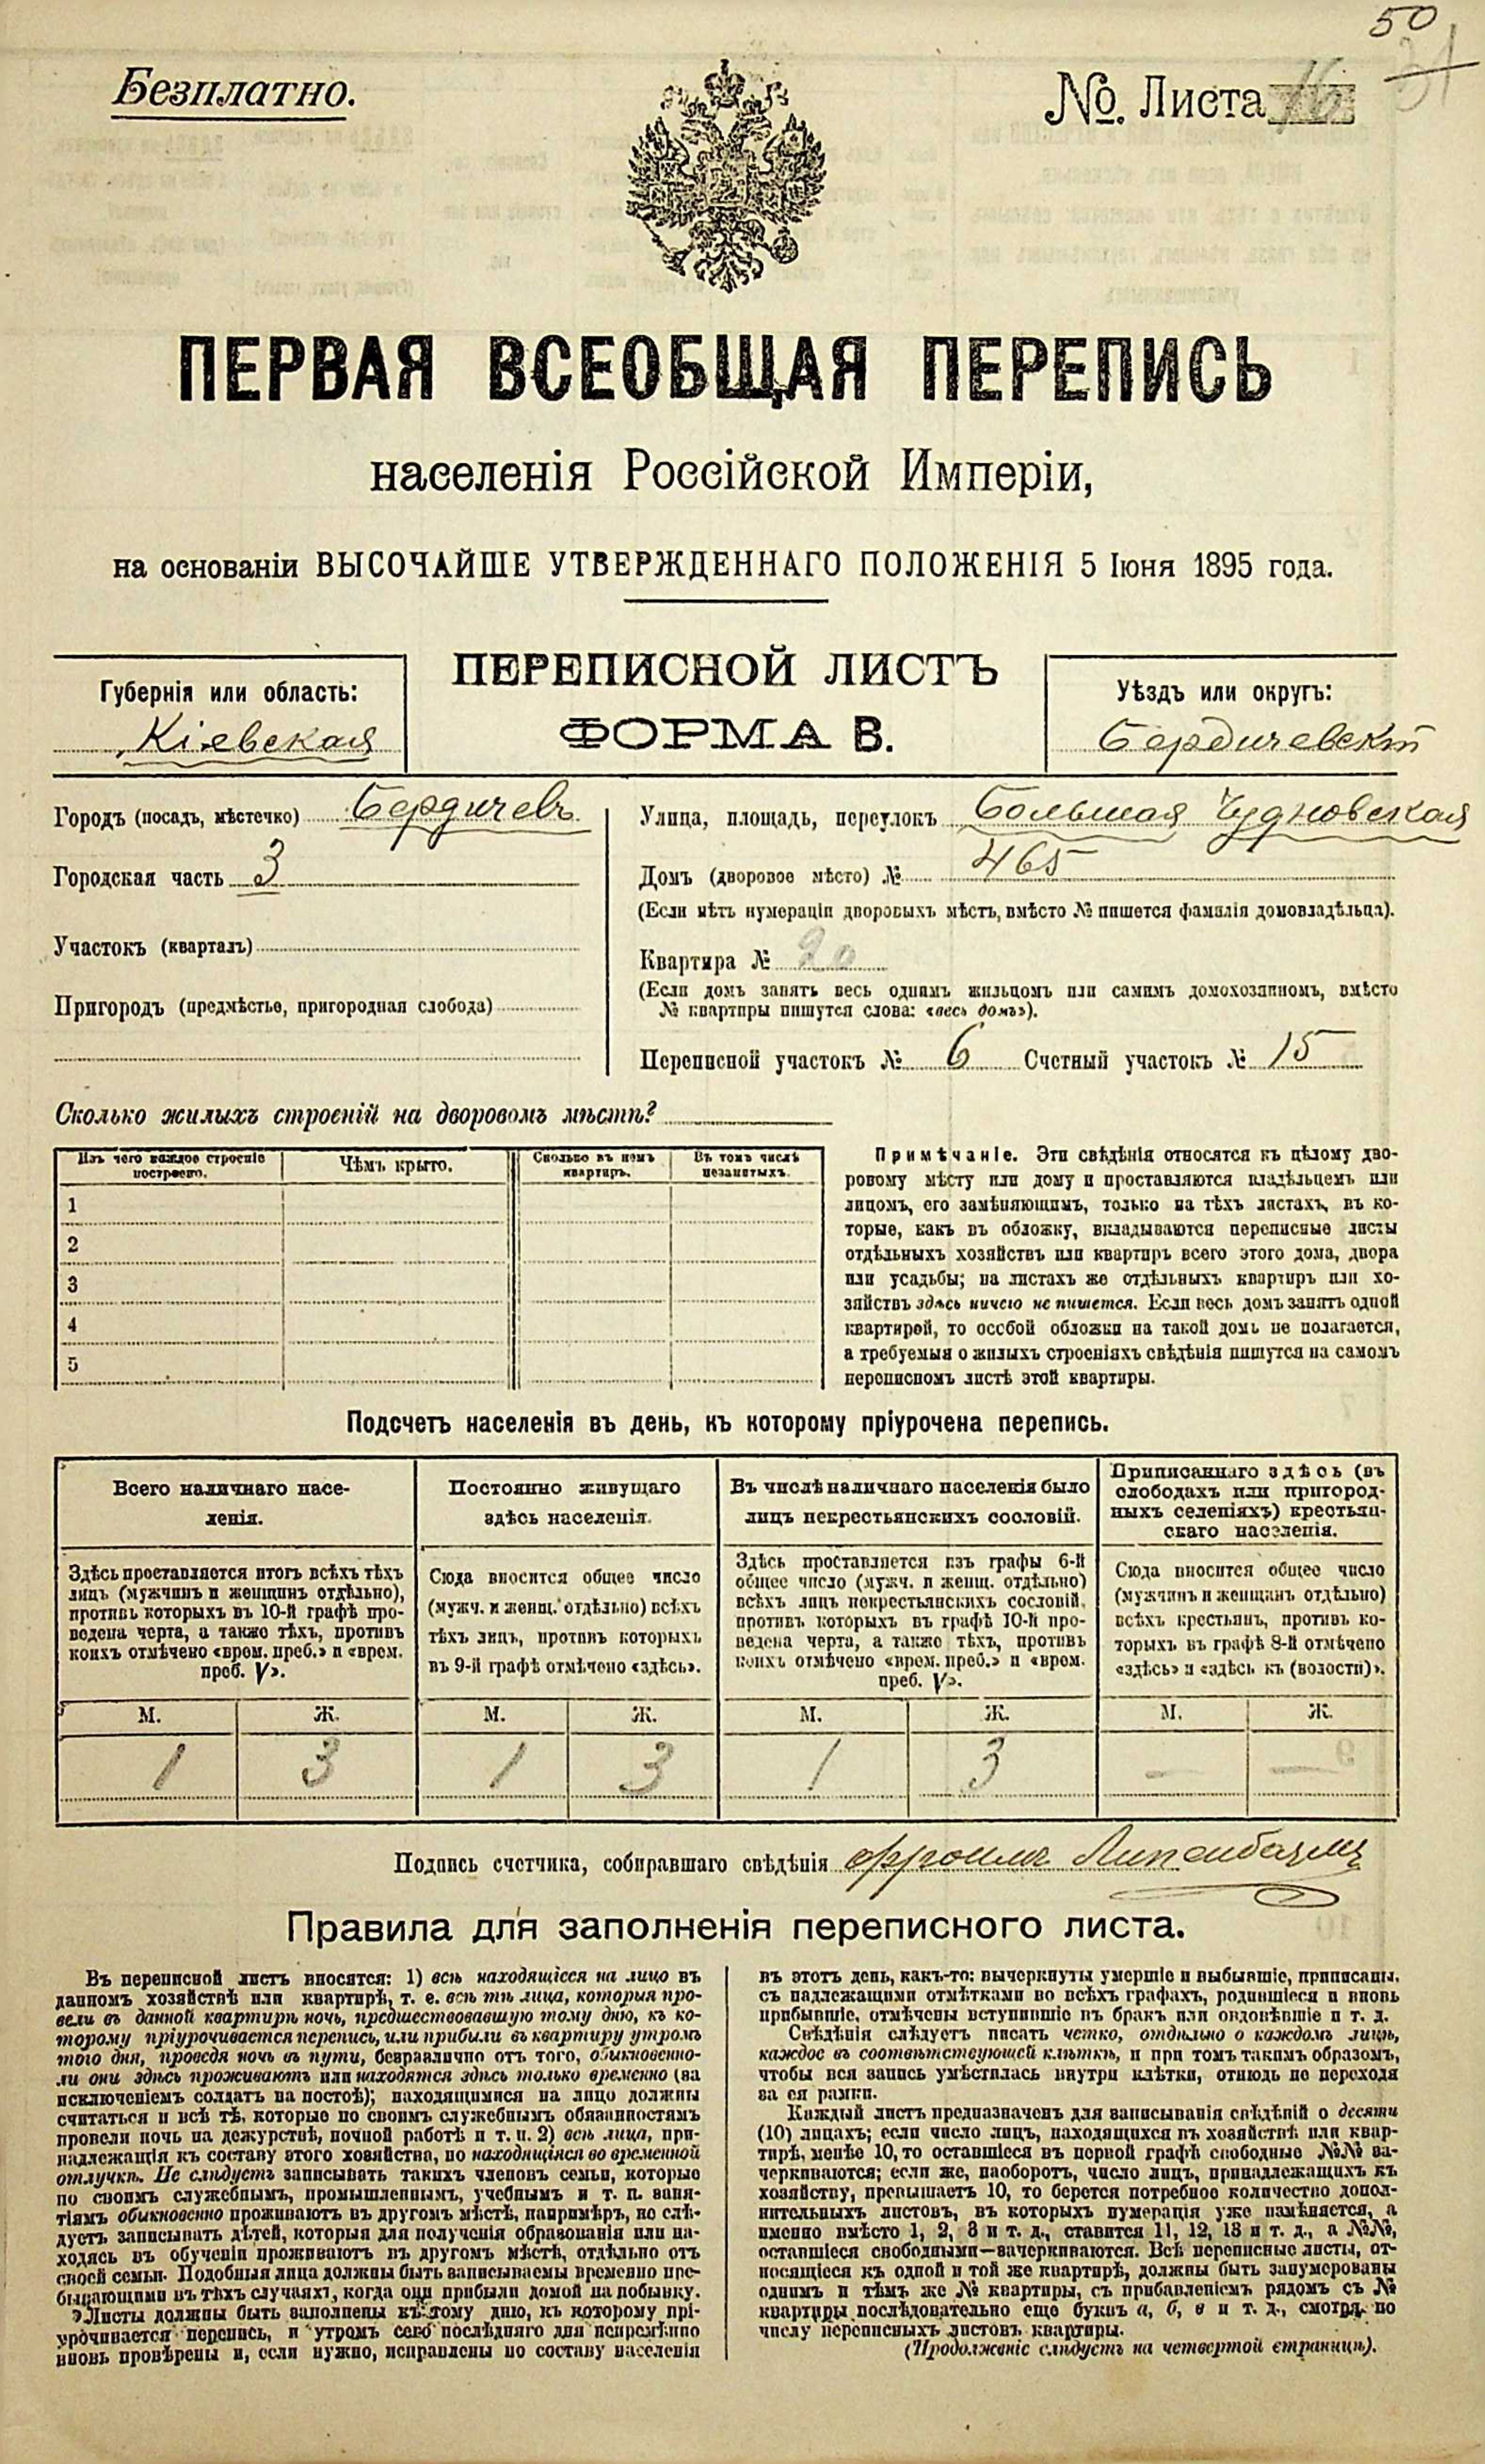 50
Безплатно.
№. Листа 16
ПЕРВАЯ ВСЕОБЩАЯ ПЕРЕПИСЬ
населенія Россійской Имперіи,
на основаніи ВЫСОЧАЙШЕ УТВЕРЖДЕННАГО ПОЛОЖЕНІЯ 5 Іюня 1895 года.
Губернія или область:
Кіевская
ПЕРЕПИСНОЙ ЛИСТЪ
ФОРМА В.
Уѣздъ или округъ:
Бердичевскій
Городъ (посадъ, мѣстечко) Бердичевъ
Городская часть 3
Участокъ (кварталъ)
Пригородъ (предмѣстье, пригородная слобода)
Улица, площадь, переулокъ Большая Чудновская
Домъ (дворовое мѣсто) № 465
(Если нѣтъ нумераціи дворовыхъ мѣстъ, вмѣсто № пишется фамилія домовладѣльца).
Квартира № 20
(Если домъ занятъ весь однимъ жильцомъ или самимъ домохозяиномъ, вмѣсто
№ квартиры пишутся слова: «весь домъ»).
Переписной участокъ № 6 Счетный участокъ № 15
Сколько жилыхъ строеній на дворовомъ мѣстѣ?
Изъ чего каждое строеніе
построено.
Чѣмъ крыто.
Сколько въ немъ
квартиръ.
Въ томъ числѣ
незанятыхъ.
1
2
3
4
5
Примѣчаніе. Эти свѣдѣнія относятся къ цѣлому дво-
ровому мѣсту или дому и проставляются владѣльцемъ или
лицомъ, его замѣняющимъ, только на тѣхъ листахъ, въ ко-
торые, какъ въ обложку, вкладываются переписные листы
отдѣльныхъ хозяйствъ или квартиръ всего этого дома, двора
или усадьбы; на листахъ же отдѣльныхъ квартиръ или хо-
зяйствъ здѣсь ничего не пишется. Если весь домъ занятъ одной
квартирой, то особой обложки на такой домъ не полагается,
а требуемыя о жилыхъ строеніяхъ свѣдѣнія пишутся на самомъ
переписномъ листѣ этой квартиры.
Подсчетъ населенія въ день, къ которому пріурочена перепись.
Всего наличнаго насе-
ленія.
Здѣсь проставляется итогъ всѣхъ тѣхъ
лицъ (мужчинъ и женщинъ отдѣльно),
противъ которыхъ въ 10-й графѣ про-
ведена черта, а также тѣхъ, противъ
коихъ отмѣчено «врем. преб.» и «врем.
преб. V».
Постоянно живущаго
здѣсь населенія.
Сюда вносится общее число
(мужч. и женщ. отдѣльно) всѣхъ
тѣхъ лицъ, противъ которыхъ
въ 9-й графѣ отмѣчено «здѣсь».
Въ числѣ наличнаго населенія было
лицъ некрестьянскихъ сословій.
Здѣсь проставляется изъ графы 6-й
общее число (мужч. и женщ. отдѣльно)
всѣхъ лицъ некрестьянскихъ сословій,
противъ которыхъ въ графѣ 10-й про-
ведена черта, а также тѣхъ, противъ
коихъ отмѣчено «врем. преб.» и «врем.
преб. V».
Приписаннаго здѣсь (въ
слободахъ или пригород-
ныхъ селеніяхъ) крестьян-
скаго населенія.
Сюда вносится общее число
(мужчинъ и женщинъ отдѣльно)
всѣхъ крестьянъ, противъ ко-
торыхъ въ графѣ 8-й отмѣчено
«здѣсь» и «здѣсь къ (волости)».
М. Ж. М. Ж. М. Ж. М. Ж.
1 3 1 3 1 3 — —
Подпись счетчика, собиравшаго свѣдѣнія
Правила для заполненія переписного листа.
Въ переписной листъ вносятся: 1) всѣ находящіеся на лицо въ
данномъ хозяйствѣ или квартирѣ, т. е. всѣ тѣ лица, которыя про-
вели въ данной квартирѣ ночь, предшествовавшую тому дню, къ ко-
торому пріурочивается перепись, или прибыли въ квартиру утромъ
того дня, проведя ночь въ пути, безразлично отъ того, обыкновенно-
ли они здѣсь проживаютъ или находятся здѣсь только временно (за
исключеніемъ солдатъ на постоѣ); находящимися на лицо должны
считаться и всѣ тѣ, которые по своимъ служебнымъ обязанностямъ
провели ночь на дежурствѣ, ночной работѣ и т. п. 2) всѣ лица, при-
надлежащія къ составу этого хозяйства, но находящіяся во временной
отлучкѣ. Не слѣдуетъ записывать такихъ членовъ семьи, которые
по своимъ служебнымъ, промышленнымъ, учебнымъ и т. п. заня-
тіямъ обыкновенно проживаютъ въ другомъ мѣстѣ, напримѣръ, не слѣ-
дуетъ записывать дѣтей, которыя для полученія образованія или на-
ходясь въ обученіи проживаютъ въ другомъ мѣстѣ, отдѣльно отъ
своей семьи. Подобныя лица должны быть записываемы временно пре-
бывающими въ тѣхъ случаяхъ, когда они прибыли домой на побывку.
Листы должны быть заполнены къ тому дню, къ которому прі-
урочивается перепись, и утромъ сего послѣдняго дня непремѣнно
вновь провѣрены и, если нужно, исправлены по составу населенія
въ этотъ день, какъ-то: вычеркнуты умершіе и выбывшіе, приписаны,
съ надлежащими отмѣтками во всѣхъ графахъ, родившіеся и вновь
прибывшіе, отмѣчены вступившіе въ бракъ или овдовѣвшіе и т. д.
Свѣдѣнія слѣдуетъ писать четко, отдѣльно о каждомъ лицѣ,
каждое въ соотвѣтствующей клѣткѣ, и при томъ такимъ образомъ,
чтобы вся запись умѣстилась внутри клѣтки, отнюдь не переходя
за ея рамки.
Каждый листъ предназначенъ для записыванія свѣдѣній о десяти
(10) лицахъ; если число лицъ, находящихся въ хозяйствѣ или квар-
тирѣ, менѣе 10, то оставшіеся въ первой графѣ свободные №№ за-
черкиваются; если же, наоборотъ, число лицъ, принадлежащихъ къ
хозяйству, превышаетъ 10, то берется потребное количество допол-
нительныхъ листовъ, въ которыхъ нумерація уже измѣняется, а
именно вмѣсто 1, 2, 3 и т. д., ставится 11, 12, 13 и т. д., а №№,
оставшіеся свободными—зачеркиваются. Всѣ переписные листы, от-
носящіеся къ одной и той же квартирѣ, должны быть занумерованы
однимъ и тѣмъ же № квартиры, съ прибавленіемъ рядомъ съ №
квартиры послѣдовательно еще буквъ а, б, в и т. д., смотря по
числу переписныхъ листовъ квартиры.
(Продолженіе слѣдуетъ на четвертой страницѣ).